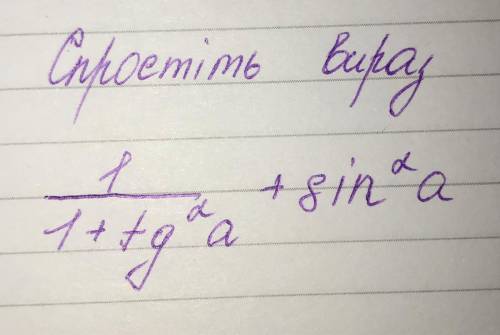 Спростіть вираз
1/(1 + tg²a) + sin²a